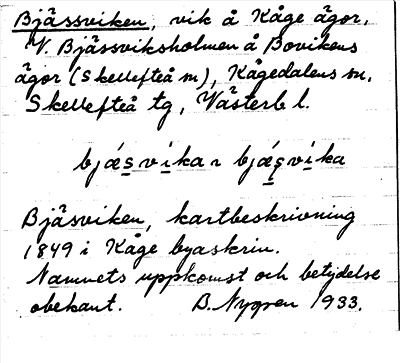 Bjässviken, vik å Kåge ägor,
V. Bjässviksholmen å Bovikens
ägor (Skellefteå sn), Kågedalens sn,
Skellefteå tg, Västerb l.
bjǽsvika ~ bjǽs̩vika
Bjäsviken, kartbeskrivning
1849 i Kåge byaskrin.
Namnets uppkomst och betydelse
obekant. B. Nygren 1933.